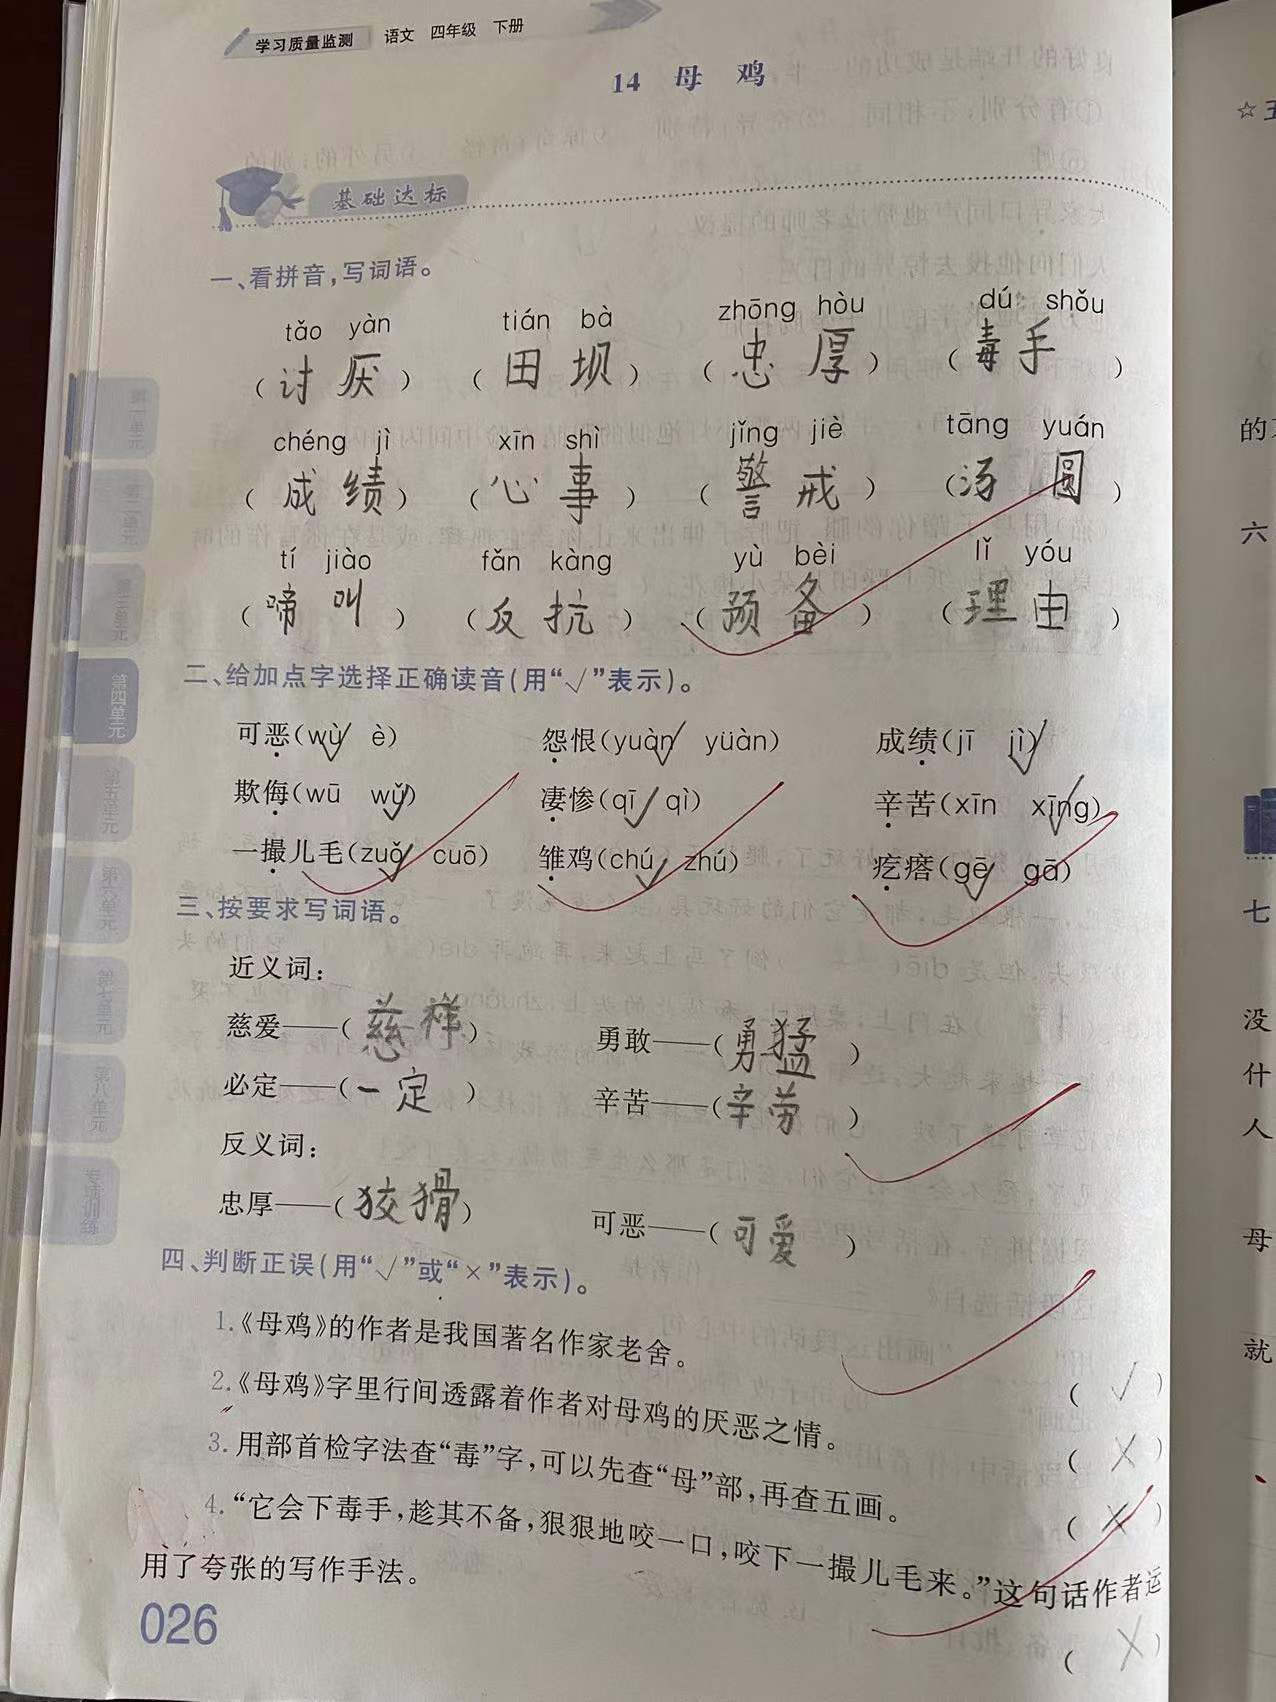 学习质量监测 语文 四年级 下册
14 母 鸡
基础达标
一、看拼音,写词语。
tǎo yàn tián bà zhōng hòu dú shǒu
(讨厌) (田坝) (忠厚) (毒手)
chéng jì xīn shì jǐng jiè tāng yuán
(成绩) (心事) (警戒) (汤圆)
tí jiào fǎn kàng yù bèi lǐ yóu
(啼叫) (反抗) (预备) (理由)
二、给加点字选择正确读音(用“√”表示)。
可恶(wù√ è) 怨恨(yuàn√ yüàn) 成绩(jī jì√)
欺侮(wū wǔ√) 凄惨(qī√ qì) 辛苦(xīn xīng√)
一撮儿毛(zuǒ√ cuō) 雏鸡(chú√ zhú) 疙瘩(gē√ gā)
三、按要求写词语。
近义词:
慈爱——(慈祥) 勇敢——(勇猛)
必定——(一定) 辛苦——(辛劳)
反义词:
忠厚——(狡猾) 可恶——(可爱)
四、判断正误(用“√”或“×”表示)。
1.《母鸡》的作者是我国著名作家老舍。 (√)
2.《母鸡》字里行间透露着作者对母鸡的厌恶之情。 (×)
3.用部首检字法查“毒”字,可以先查“母”部,再查五画。 (×)
4.“它会下毒手,趁其不备,狠狠地咬一口,咬下一撮儿毛来。”这句话作者运
用了夸张的写作手法。 (×)
026
第一单元
第二单元
第三单元
第四单元
第五单元
第六单元
第七单元
第八单元
专项训练
☆五
的
六
七
没
什
人
母
就